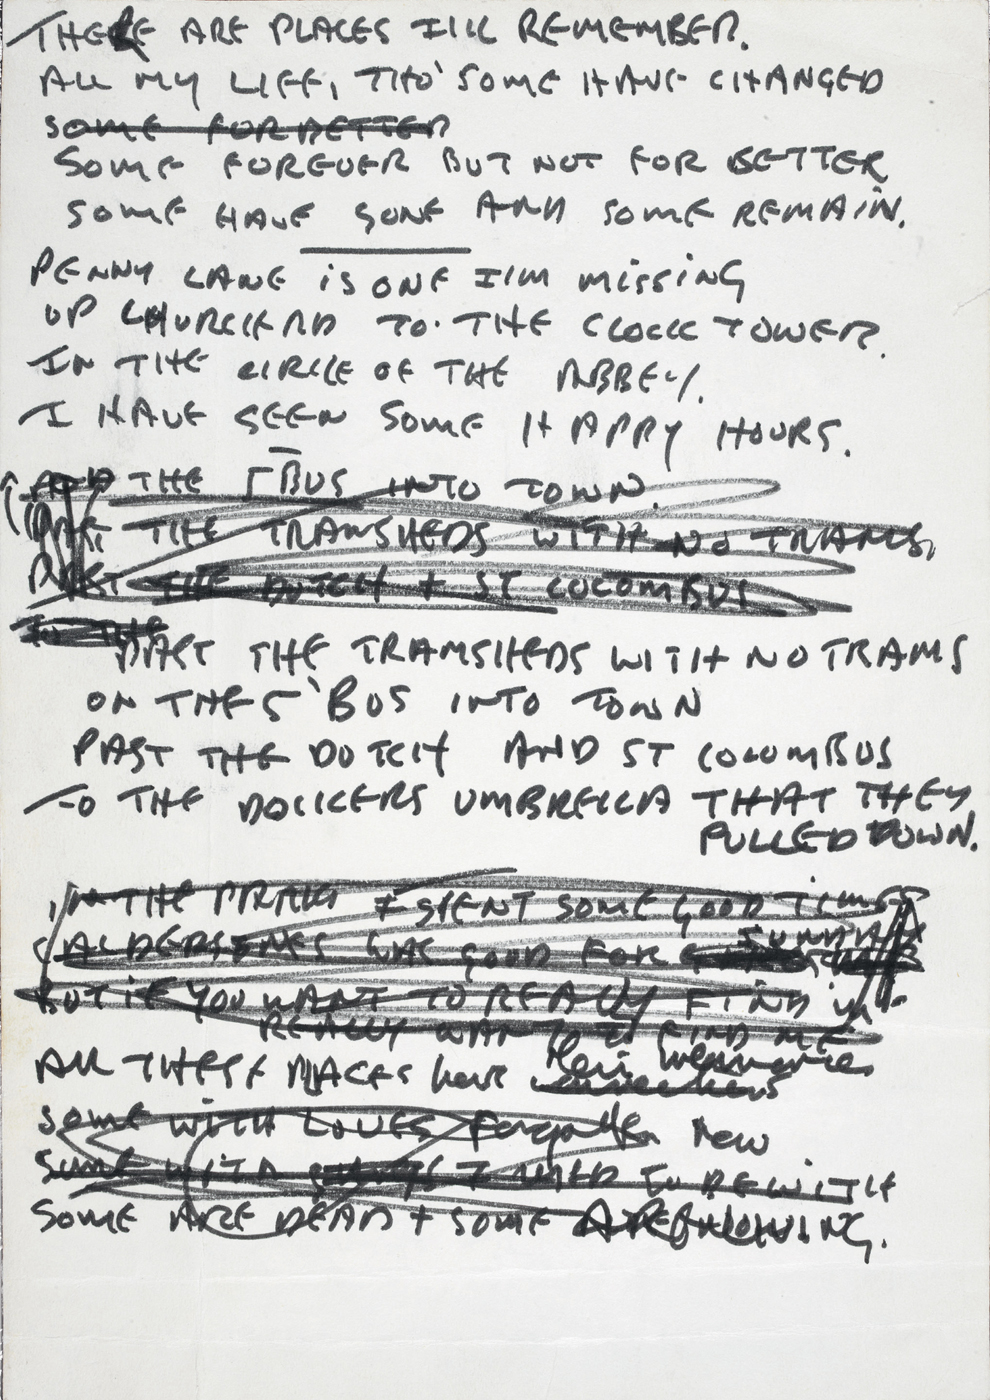 THERE ARE PLACES I'LL REMEMBER.
ALL MY LIFE, THO' SOME HAVE CHANGED
SOME FOR BETTER
SOME FOREVER BUT NOT FOR BETTER
SOME HAVE GONE AND SOME REMAIN.
PENNY LANE IS ONE I'M MISSING
UP CHURCH RD TO THE CLOCK TOWER.
IN THE CIRCLE OF THE ABBEY.
I HAVE SEEN SOME HAPPY HOURS.
AND THE 5 BUS INTO TOWN.
PAST THE TRAMSHEDS WITH NO TRAMS,
PAST THE DUTCH + ST COLOMBUS
IN THE
PAST THE TRAMSHEDS WITH NO TRAMS
ON THE 5 BUS INTO TOWN
PAST THE DUTCH AND ST COLUMBUS
TO THE DOCKERS UMBRELLA THAT THEY
PULLED DOWN.
IN THE PARKS I SPENT SOME GOOD TIMES
CALDERSTONES WAS GOOD FOR
BUT IF YOU WANT TO REALLY FIND
REALLY WANT TO FIND ME
ALL THESE PLACES have their memories
SOME WITH LOVES forgotten now
SOME WITH I USED TO BE WITH
SOME ARE DEAD + SOME ARE LIVING.